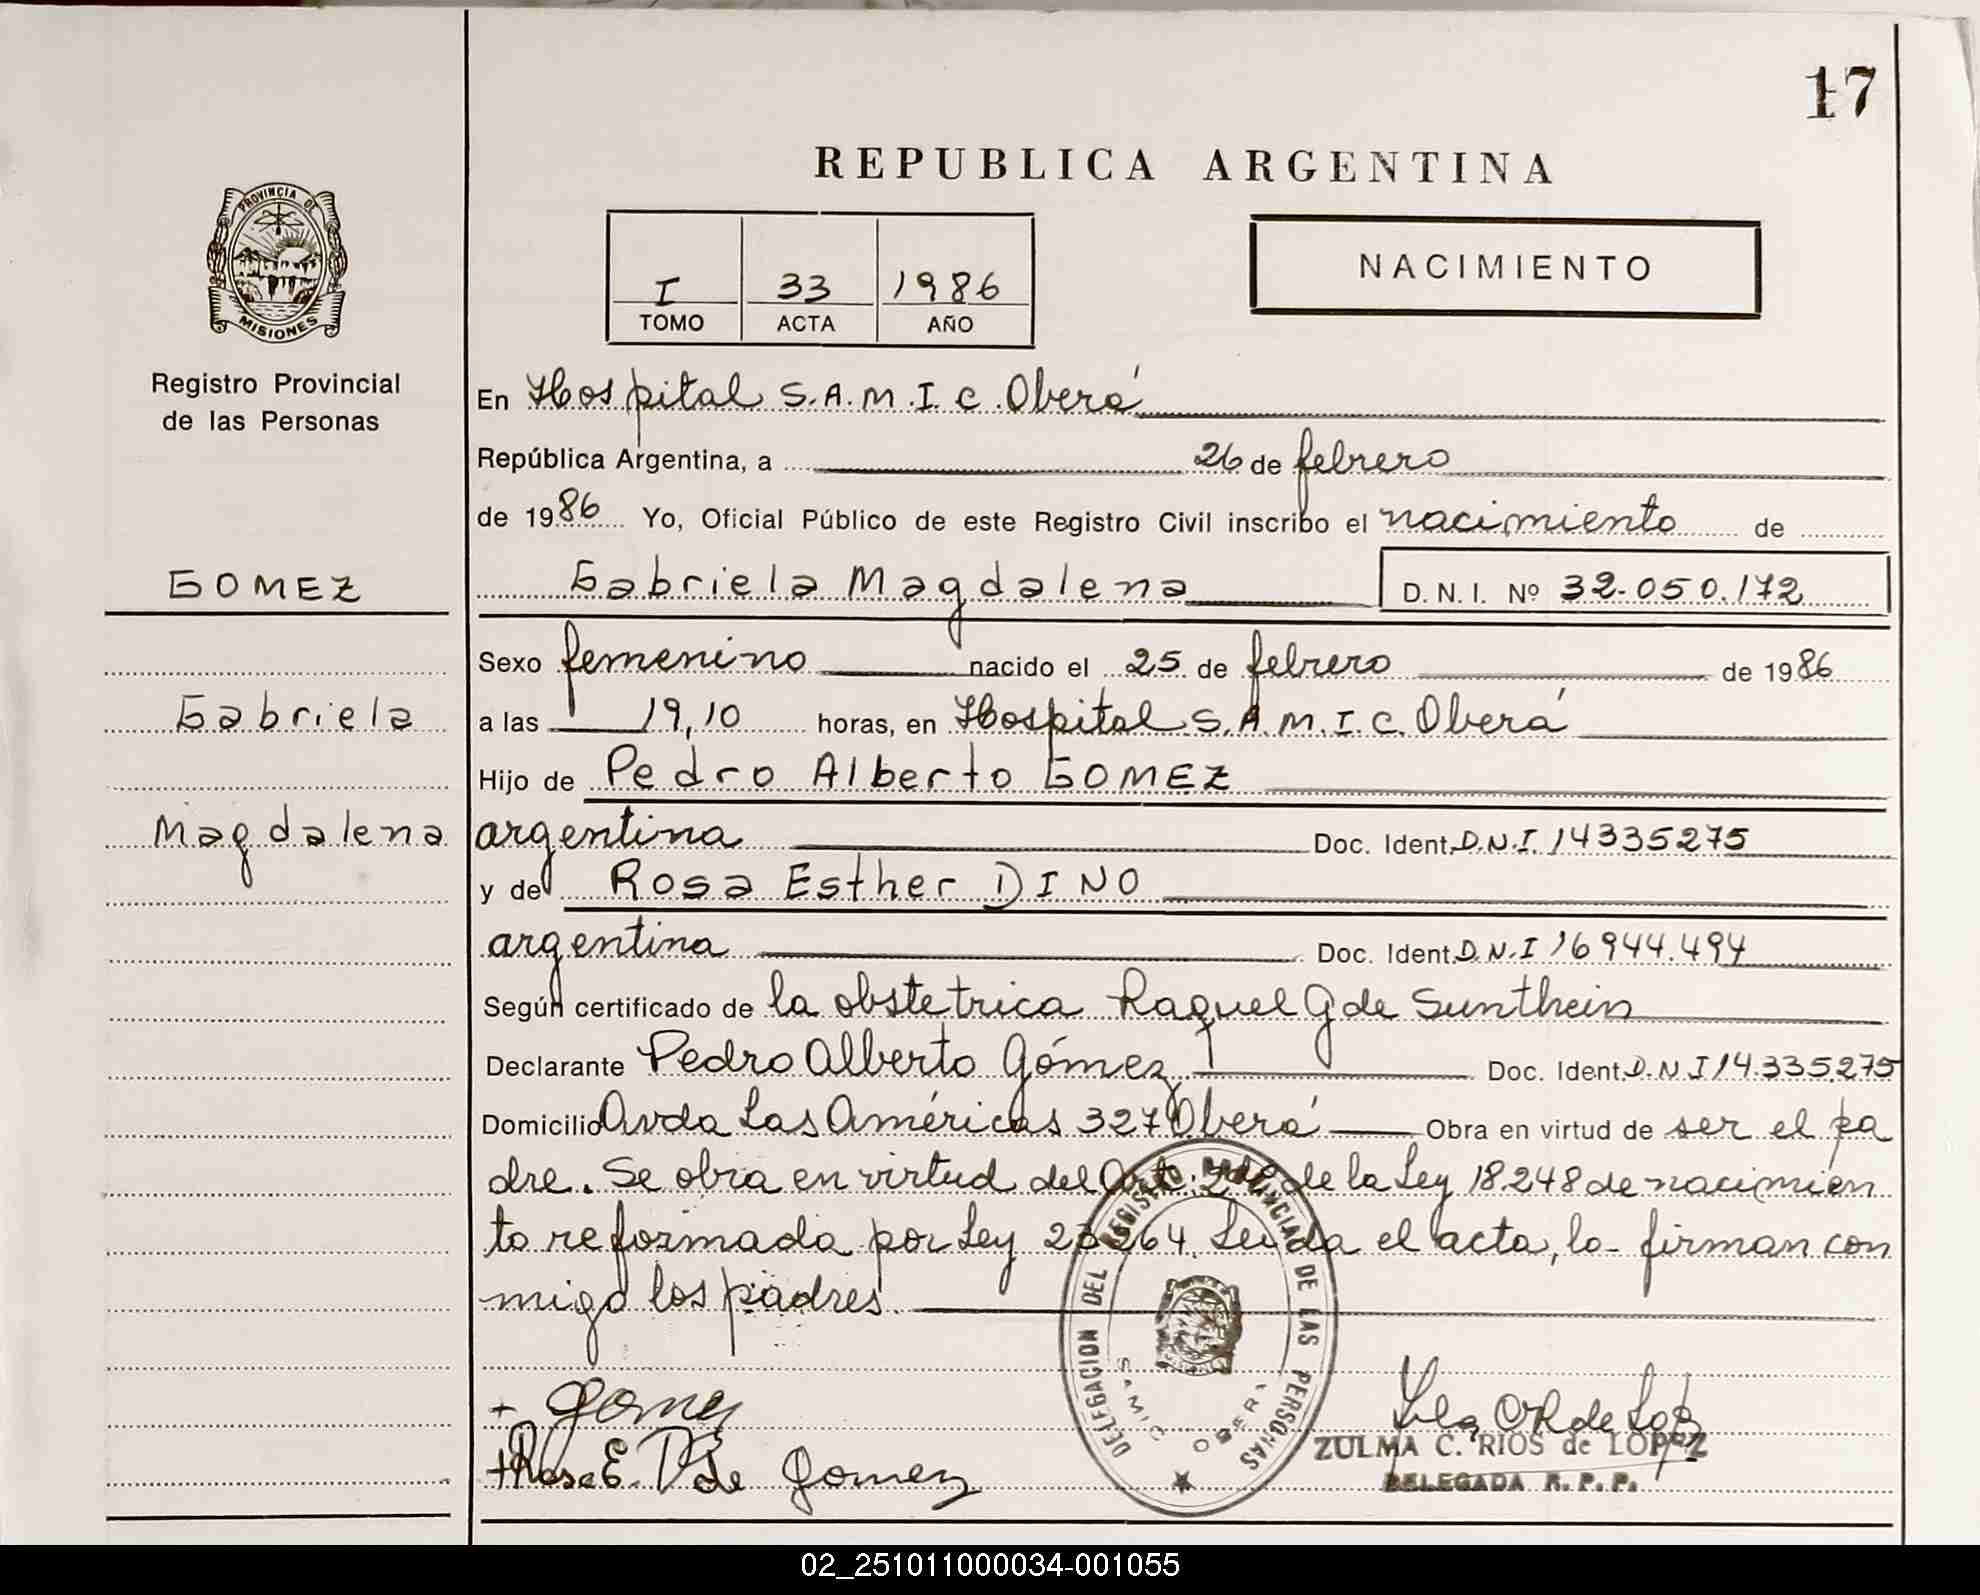 17
REPUBLICA ARGENTINA
PROVINCIA DE
MISIONES
Registro Provincial
de las Personas
I 33 1986
TOMO ACTA AÑO
NACIMIENTO
En Hospital S.A.M.I.C. Oberá
República Argentina, a 26 de febrero
de 1986 Yo, Oficial Público de este Registro Civil inscribo el nacimiento de
GOMEZ
Gabriela Magdalena D.N.I. Nº 32.050.172
Sexo femenino nacido el 25 de febrero de 1986
Gabriela
a las 19,10 horas, en Hospital S.A.M.I.C. Oberá
Hijo de Pedro Alberto GOMEZ
Magdalena
argentina Doc. Ident. D.N.I. 14335275
y de Rosa Esther DINO
argentina Doc. Ident. D.N.I 16944.494
Según certificado de la obstetrica Raquel G de Sunthein
Declarante Pedro Alberto Gómez Doc. Ident. D.N I 14.335.275
Domicilio Avda Las Américas 327 Oberá Obra en virtud de ser el pa
dre. Se obra en virtud del Art. de la Ley 18.248 de nacimien
to reformada por Ley 23264. Leida el acta, la firman con
migo los padres.
DELEGACION DEL REGISTRO PROVINCIAL DE LAS PERSONAS
SAMIC OBERA
Gomez
Rosa E. D de Gomez
ZULMA C. RIOS de LOPEZ
DELEGADA R. P. P.
02_251011000034-001055